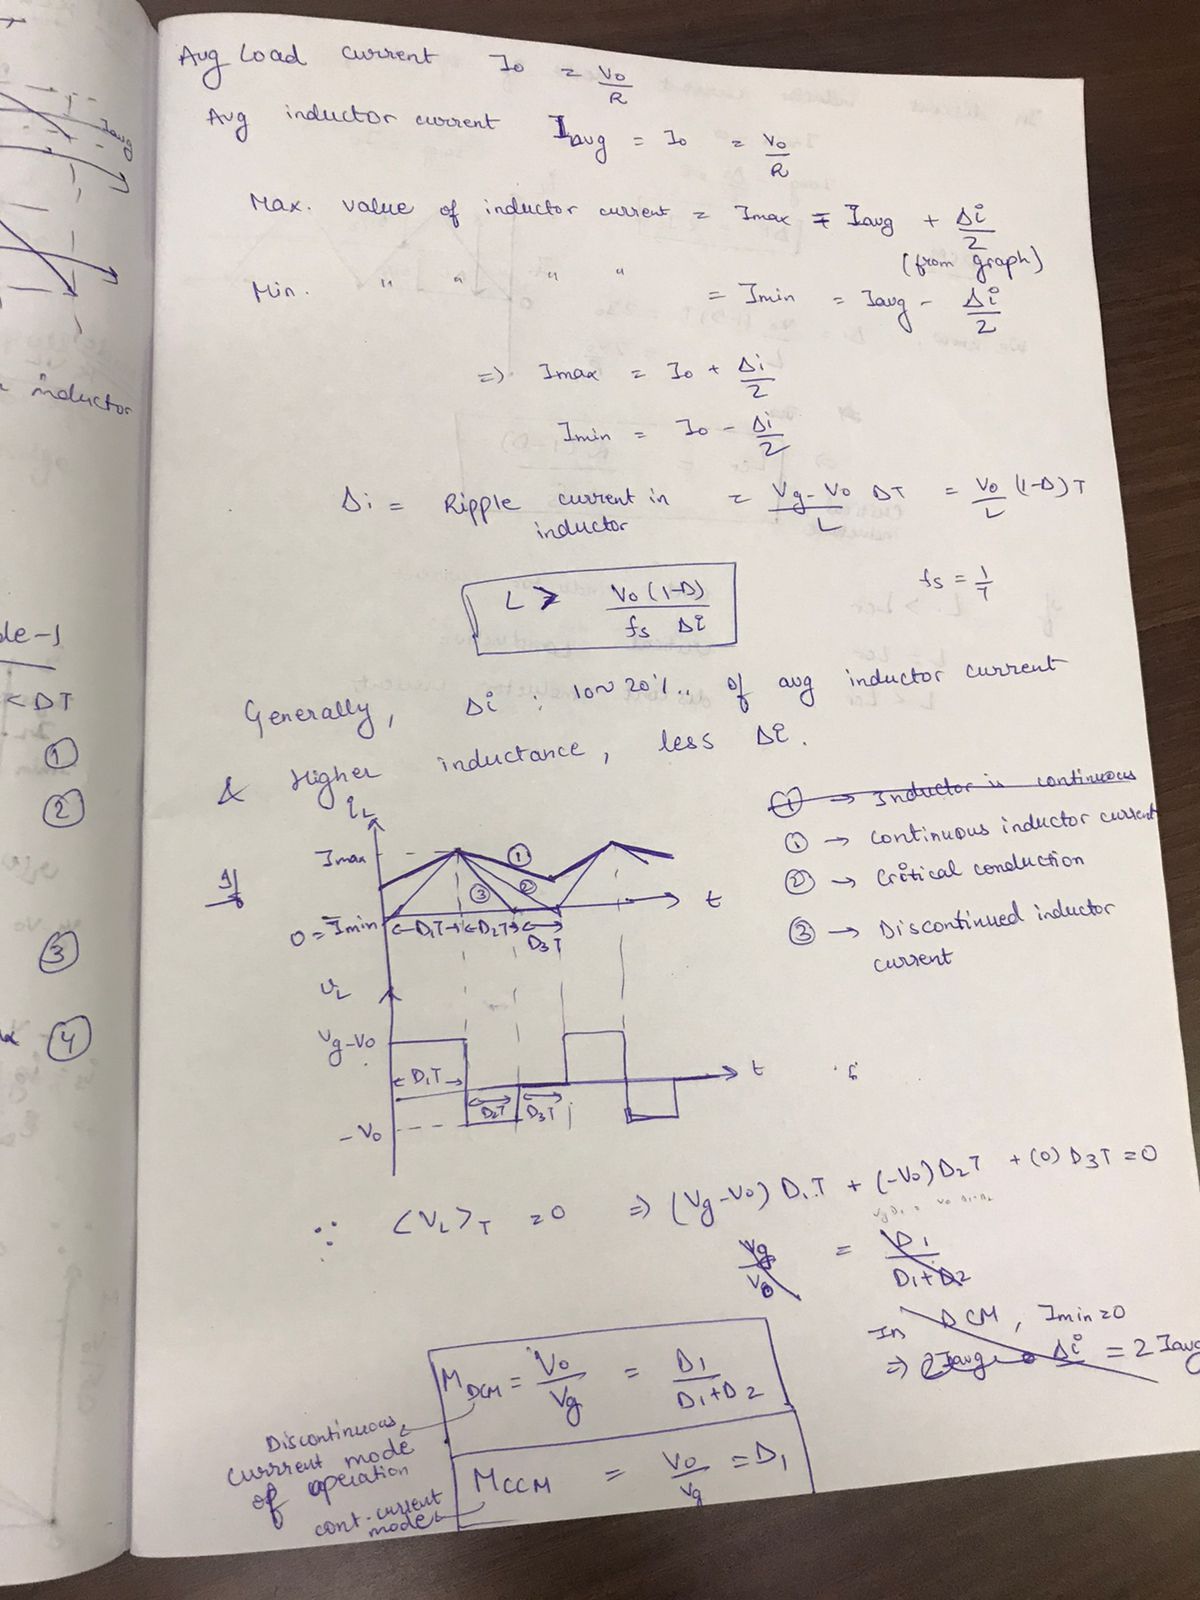 Avg Load current I₀ = V₀/R
Avg inductor current Iavg = I₀ = V₀/R
Max. value of inductor current = Imax = Iavg + Δi/2
(from graph)
Min. " " " " = Imin = Iavg - Δi/2
=> Imax = I₀ + Δi/2
Imin = I₀ - Δi/2
Δi = Ripple current in inductor = (Vg-V₀)/L DT = V₀/L (1-D)T
L ≥ V₀(1-D)/(fs Δi)
fs = 1/T
Generally, Δi : 10~20%.. of avg inductor current
& Higher inductance, less Δi.
① → Inductor is continuous
① → continuous inductor current
② → Critical conduction
③ → Discontinued inductor
current
iL
Imax
①
②
③
0 = Imin
D₁T
D₂T
D₃T
t
vL
Vg-V₀
D₁T
D₂T
D₃T
t
-V₀
∵ <VL>T = 0 => (Vg-V₀) D₁T + (-V₀)D₂T + (0) D₃T = 0
Vg/V₀ = D₁/(D₁+D₂)
In DCM, Imin = 0
=> Δi = 2 Iavg
M DCM = V₀/Vg = D₁/(D₁+D₂)
Discontinuous
currrent mode
of operation
MCCM = V₀/Vg = D₁
cont. current
mode
Iavg
inductor
de-1
< DT
①
②
③
④